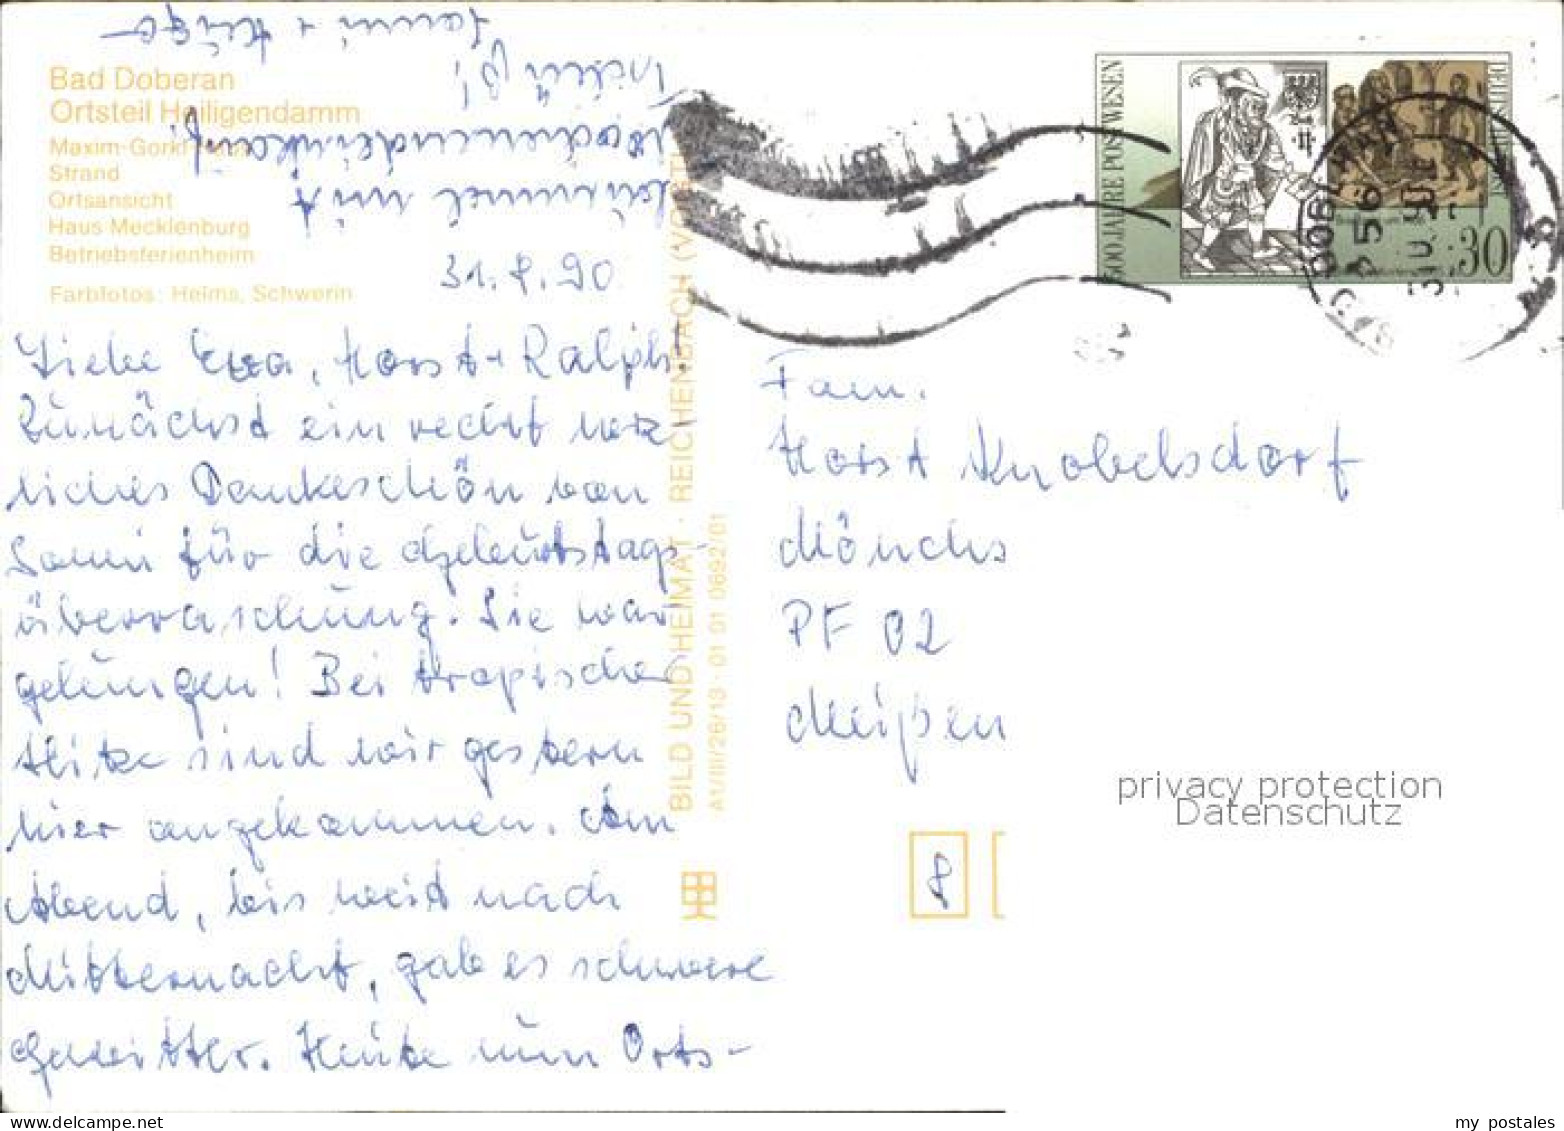 Bad Doberan
Ortsteil Heiligendamm
Maxim-Gorki-
Strand
Ortsansicht
Haus Mecklenburg
Betriebsferienheim
Farbfotos: Helms, Schwerin
31.8.90
Liebe Eva, Horst + Ralph!
Zunächst ein recht herz
liches Dankeschön von
Sanni für die Geburtstags-
überraschung. Sie war
gelungen! Bei tropischer
Hitze sind wir gestern
hier angekommen. Am
Abend, bis weit nach
Mitternacht, gab es schwere
Gewitter. Heute nun Orts-
bummel mit
Wochenendeinkauf.
Tschüß!
Sanni + Hugo
BILD UND HEIMAT · REICHENBACH (VOGTL
A1/III/26/13 · 01 01 0692/01
500 JAHRE POSTWESEN
30
Fam.
Horst Knobelsdorf
Mönchs
PF 02
Meißen
8
privacy protection
Datenschutz
www.delcampe.net
my postales